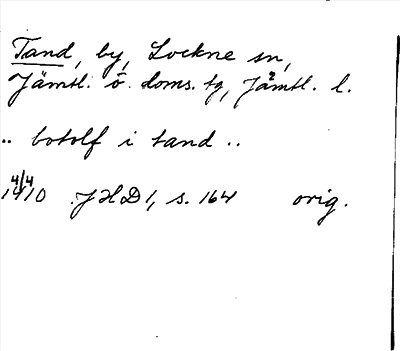 Tand, by, Lockne sn,
Jämtl. ö. doms. tg, Jämtl. l.
.. botolf i tand ..
4/4
1410 JHD 1, s. 164 orig.